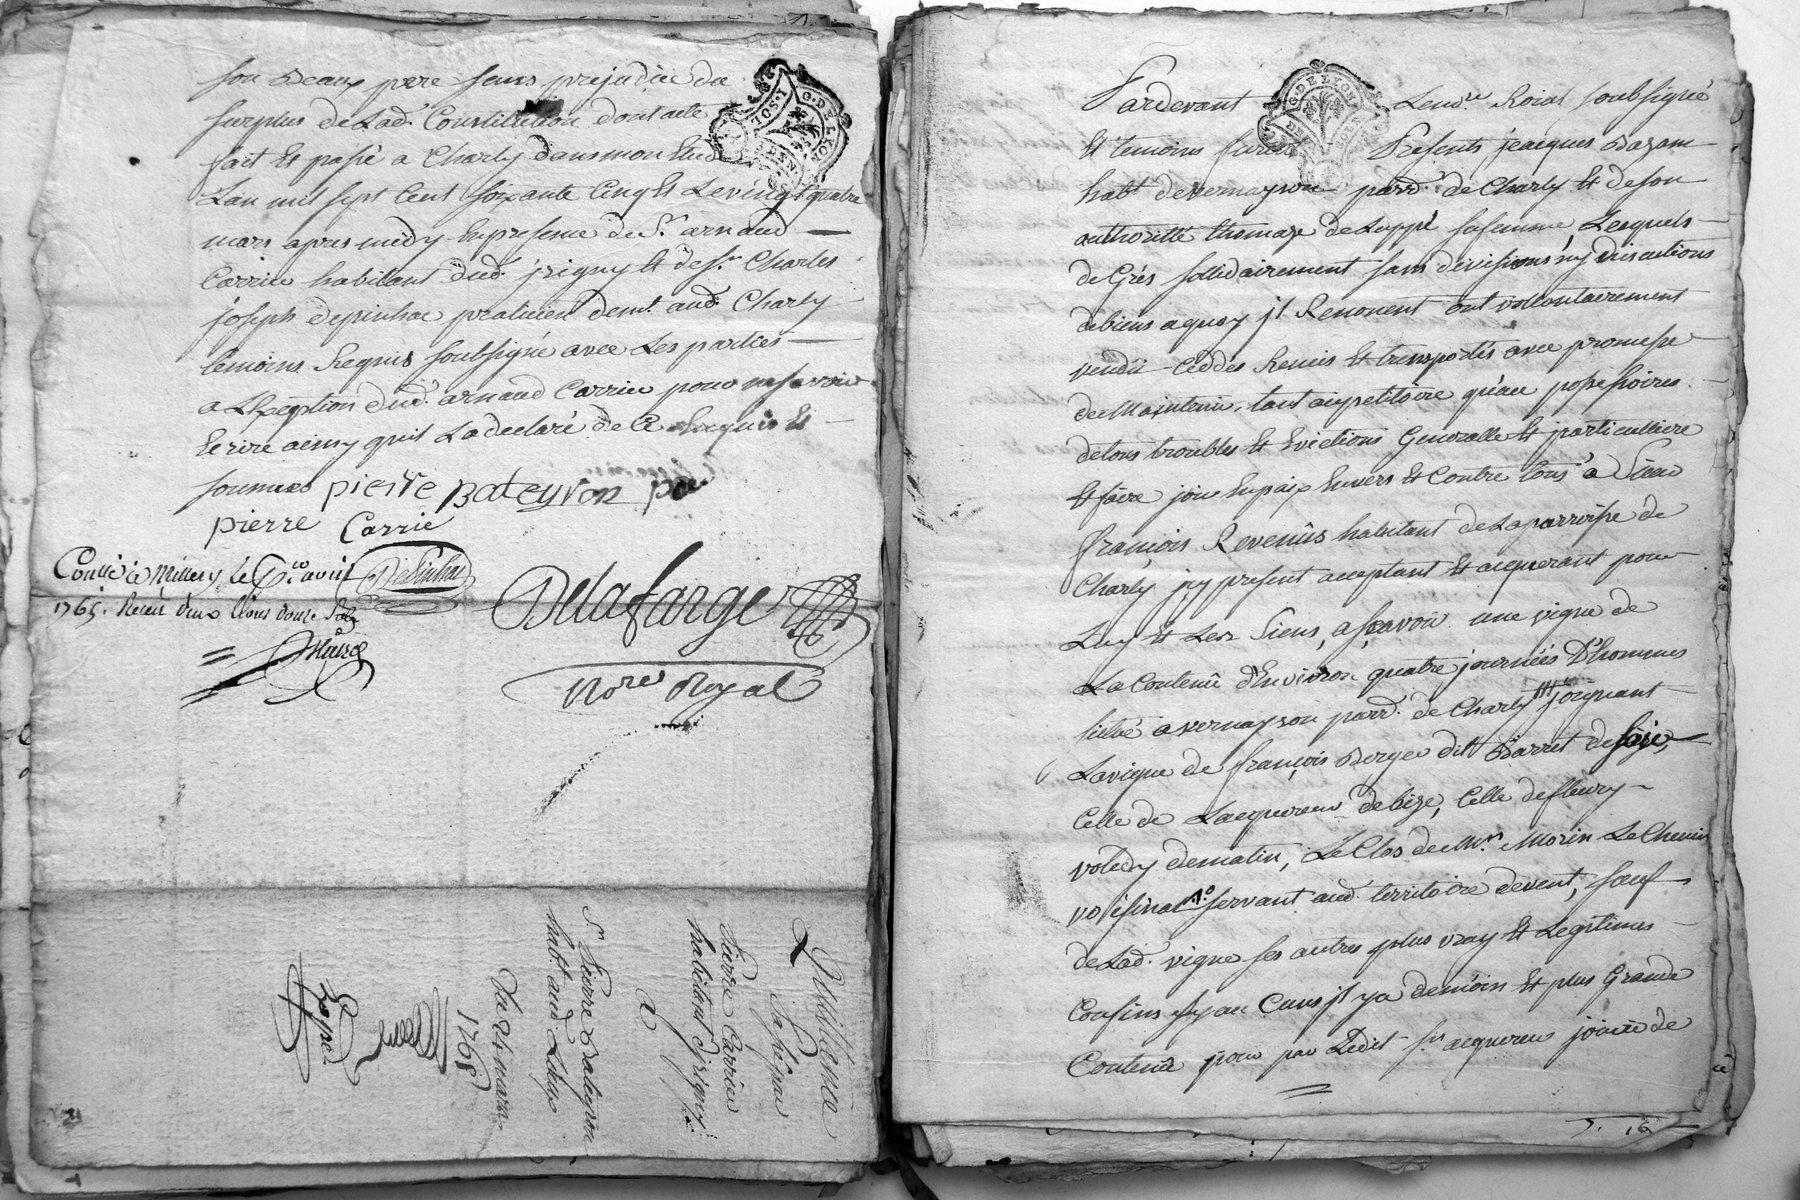 son Beaux pere sans prejudice du
surplus de Lad. Constitution dont acte
fait Et passé a Charly dans mon
L'an mil sept Cent soixante Cinq Et Le vingt quatre
mars apres midy En presence de Sr. arnaud
Carrier habitant dud. jrigny Et de Sr. Charles
joseph depinhac praticien demt. aud. Charly
temoins Requis soubsigné avec Les parties
a L'Exeption dud. arnaud Carrier pour ne savoir
Ecrire ainsy quil La declaré de Ce Enquis Et
sommés pierre Bateyron
pierre Carrié
Conllé a Millery Le avril Depinhac
1765. Receu deux livres douze sols
Delafarge
Nore Royal
Quittance
Pierre Carrier
habitant d'jrigny
a
Sr. Pierre Bateyron
habt aud. Lieu
Du 24 mars
1765
Expé
G. DE LYON
Pardevant Le nore. Roial soubsigné
Et temoins furent Presents jacques Bazam
habt de vernayson parr. de Charly Et de son
authorité thomaze de Luppé sa femme, Lesquels
de Grés sollidairement sans divisions ny discutions
de biens a quoy jl Renoncent ont vollontairement
vendû Ceddés Remis Et transportés avec promesse
de Maintenir, tant au petitoire qu'au possessoires
de tous troubles Et Evictions Generalle Et particulliere
Et faire jouir En paix Envers Et Contre tous a Sieur
françois Revenûs habitant de La parroisse de
Charly jcy present acceptant Et acquerant pour
Luy Et Les Siens, a sçavoir une vigne de
La Contenû d'Environ quatre journées D'hommes
situé a vernayson parr. de Charly joignant
La vigne de françois Berger dit Barret de soir,
Celle de L'acquereur de bize, Celle de fleury
voledy de matin, Le Clos de Mr. Morin Le Chemin
voisinal servant aud. territoire de vent, sauf
de Lad. vigne ses autres plus vray Et Legitimes
Confins sy au Cans jl y a de moins Et plus Grande
Contenû pour par Ledit Sr. acquereur jouir de